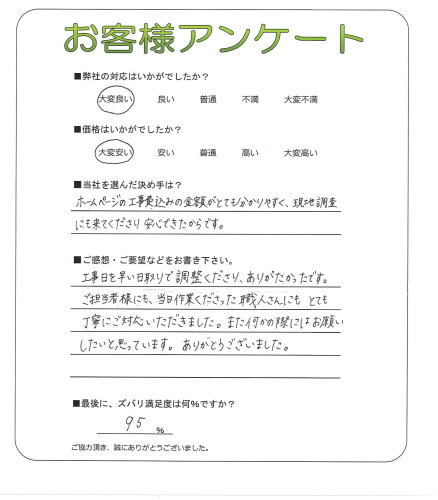 お客様アンケート
■弊社の対応はいかがでしたか?
大変良い 良い 普通 不満 大変不満
■価格はいかがでしたか?
大変安い 安い 普通 高い 大変高い
■当社を選んだ決め手は?
ホームページの工事費込みの金額がとても分かりやすく、現地調査
にも来てくださり安心できたからです。
■ご感想・ご要望などをお書き下さい。
工事日を早い日取りで調整くださり、ありがたかったです。
ご担当者様にも、当日作業くださった職人さんにも とても
丁寧にご対応いただきました。また何かの際にはお願い
したいと思っています。ありがとうございました。
■最後に、ズバリ満足度は何%ですか?
95 %
ご協力頂き、誠にありがとうございました。